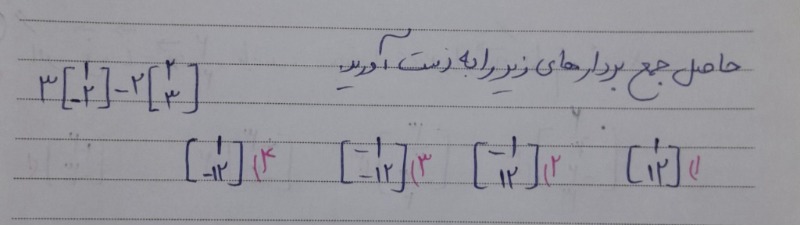 حاصل جمع بردارهای زیر را به دست آورید
۳[۱ -۲] - ۲[۲ ۳]
۱) [۱ ۱۲] ۲) [-۱ ۱۲] ۳) [-۱ -۱۲] ۴) [۱ -۱۲]